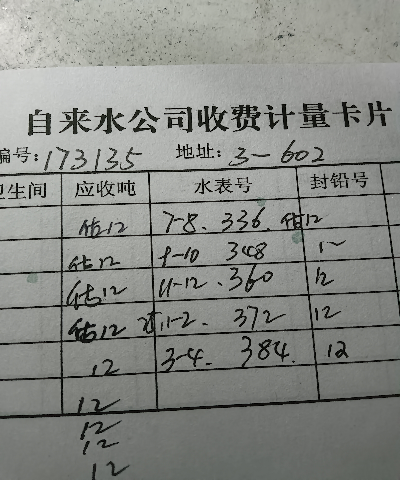 自来水公司收费计量卡片
编号:173135 地址:3-602
卫生间 应收吨 水表号 封铅号
估12 7-8. 336. 估12
估12 9-10 348 12
估12 11-12. 360 12
估12 1-2. 372 12
12 3-4. 384. 12
12
12
12
12